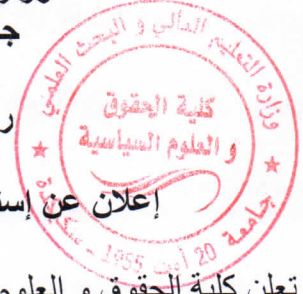 وزارة التعليم العالي و البحث العلمي
كلية الحقوق
و العلوم السياسية
جامعة 20 أوت 1955 - سكيكدة
إعلان عن إست
تعلن كلية الحقوق و العلوم